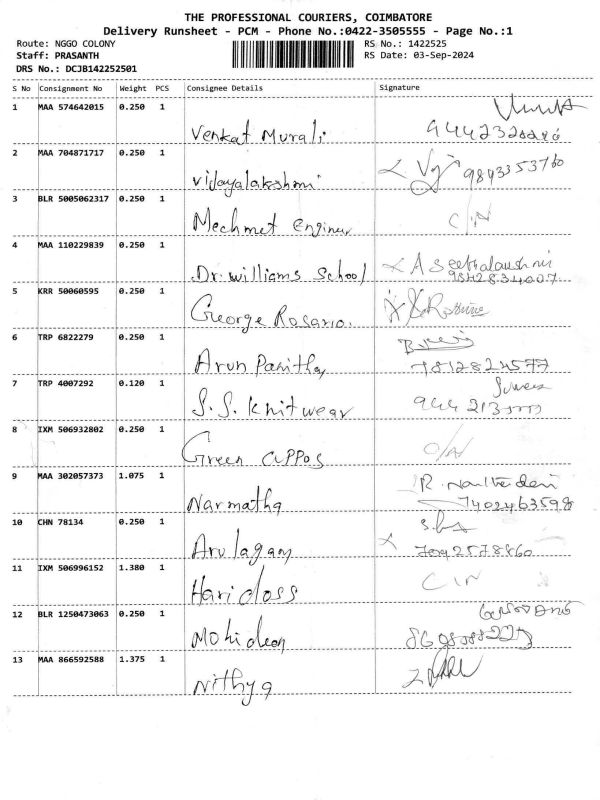 THE PROFESSIONAL COURIERS, COIMBATORE
Delivery Runsheet - PCM - Phone No.:0422-3505555 - Page No.:1
Route: NGGO COLONY
RS No.: 1422525
Staff: PRASANTH
RS Date: 03-Sep-2024
DRS No.: DCJB142252501
S No Consignment No Weight PCS Consignee Details Signature
1 MAA 574642015 0.250 1
Venkat Murali
2 MAA 704871717 0.250 1
Vijayalakshmi 9893353760
3 BLR 5005062317 0.250 1
Mechmet Enginer C/N
4 MAA 110229839 0.250 1
Dr. Williams School
9842834007
5 KRR 50060595 0.250 1
George Rosario.
6 TRP 6822279 0.250 1
Arun Panitha 7812824577
7 TRP 4007292 0.120 1
S.S. Knitwear
8 IXM 506932802 0.250 1
Green
9 MAA 302057373 1.075 1
Narmatha 7402463598
10 CHN 78134 0.250 1
Arulagam
11 IXM 506996152 1.380 1
Haridoss C/N
12 BLR 1250473063 0.250 1
Mohideen
13 MAA 866592588 1.375 1
Nithya